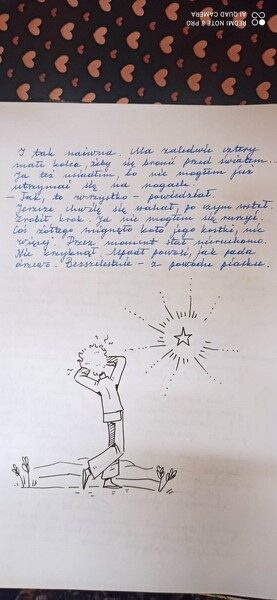 REDMI NOTE 8 PRO
AI QUAD CAMERA
I tak naiwna. Ma zaledwie cztery
małe kolce, żeby się bronić przed światem...
Ja też usiadłem, bo nie mogłem już
utrzymać się na nogach.
- Tak, to wszystko - powiedział.
Jeszcze chwilę się wahał, po czym wstał.
Zrobił krok. Ja nie mogłem się ruszyć.
Coś żółtego mignęło koło jego kostki, nic
więcej. Przez moment stał nieruchomo.
Nie krzyknął. Upadł powoli, jak pada
drzewo. Bezszelestnie - z powodu piasku.